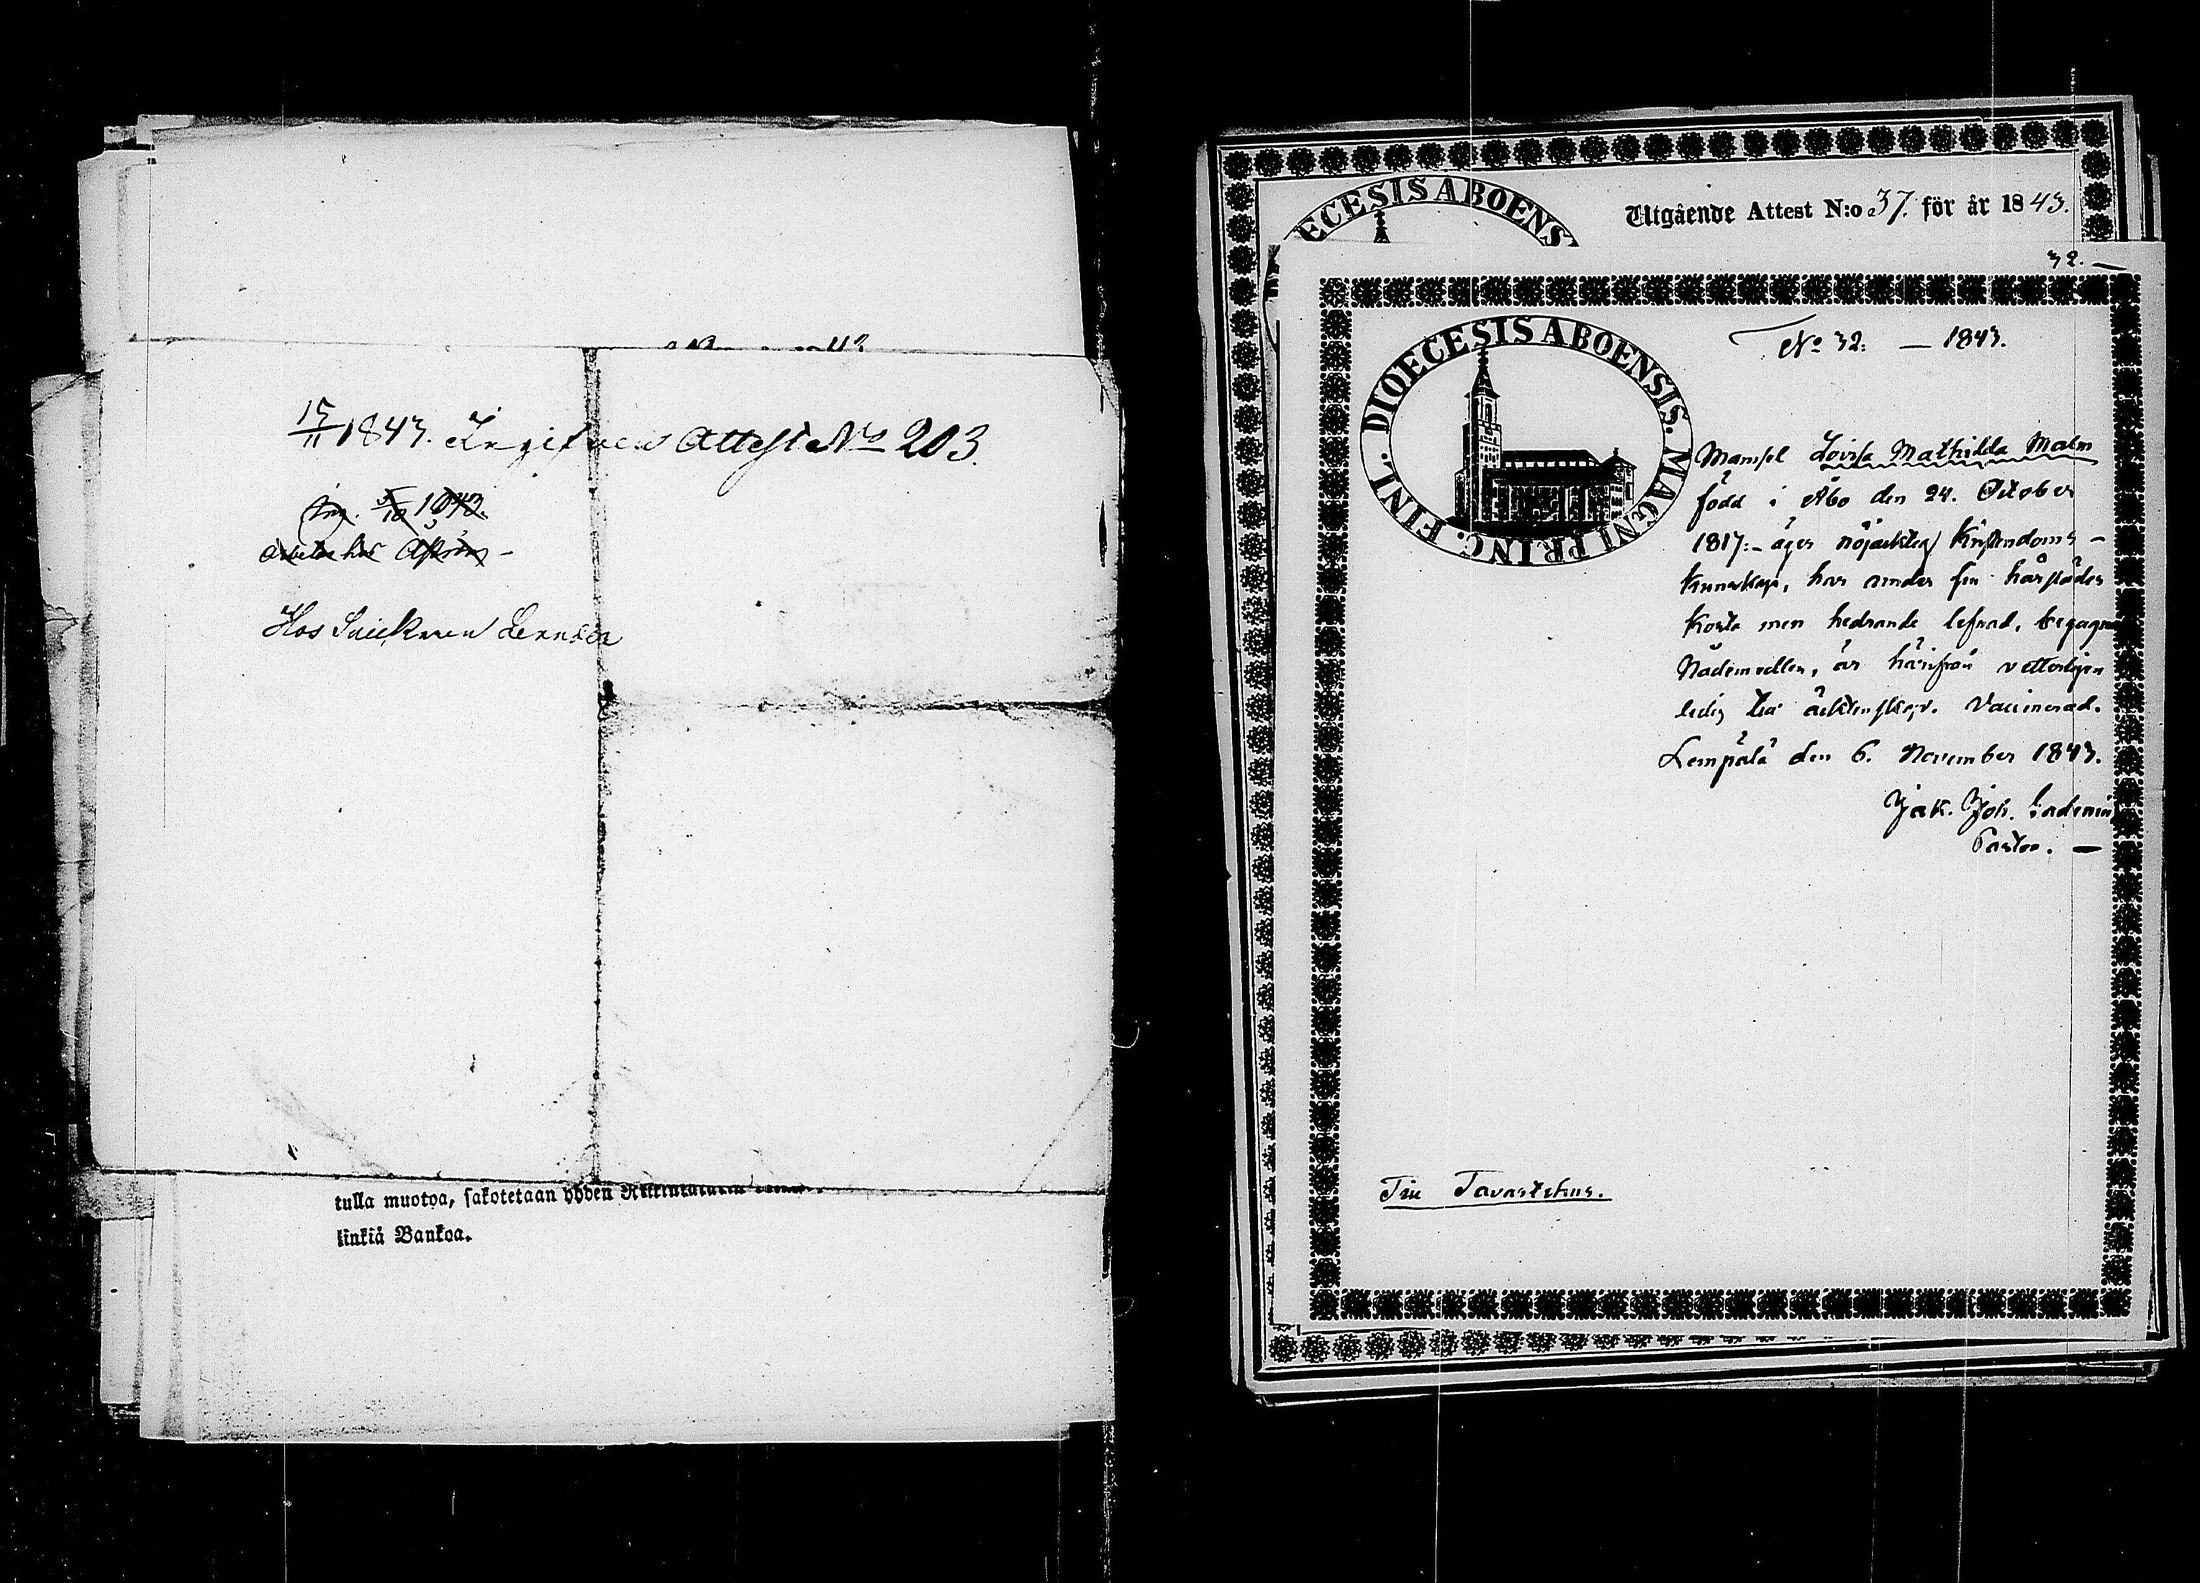 15/11 1843. Ingifven Attest No 203.
Ing. 5/10 1843.
arbetar hos
Hos Snickaren
tulla muotoa, sakotetaan yhden
linkiä Bankoa.
ECESIS ABOENS
Utgående Attest N:o 37. för år 1843.
32. —
DIOECESIS ABOENSIS. MAGNI PRINC. FINL.
No 32. — 1843.
Mamsel Lovisa Mathilda Malm
född i Åbo den 24. October
1817:- äger nöjacktig Kristendoms-
kunskap, har under sin härstädes
korta men hedrande lefnad, begagnat
Nådemedlen, är härifrån vetterligen
ledig till äcktenskap. Vaccinerad.
Lempälä den 6. November 1843.
Jak. Joh.
Pastor. —
Till Tavastehus.